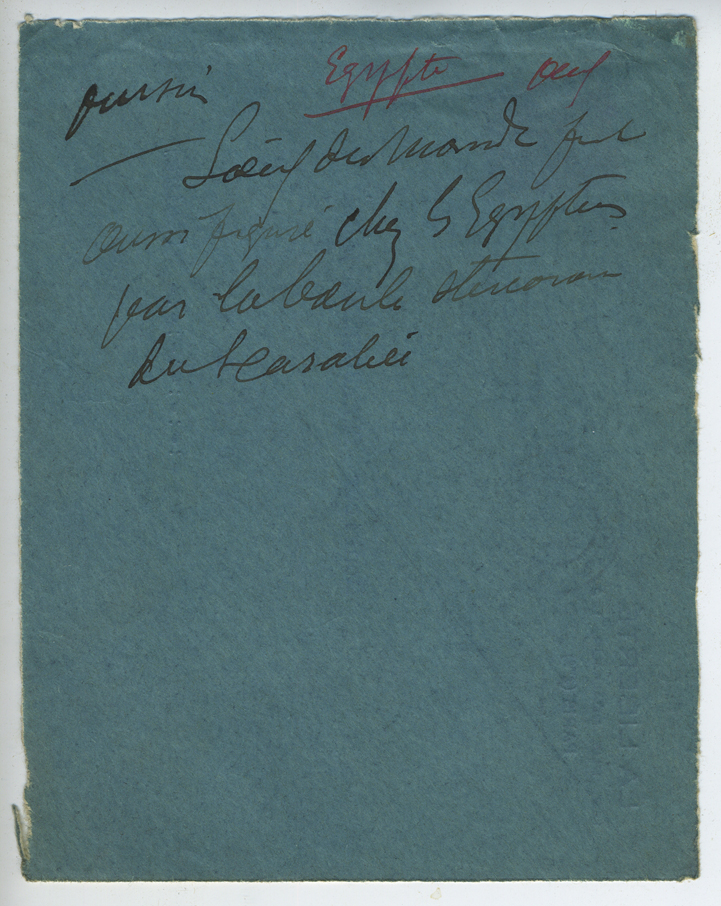 oursin
Egypte œuf
L'œuf du Monde fut
aussi figuré chez les Egyptiens
par la boule stercoraire
du scarabée